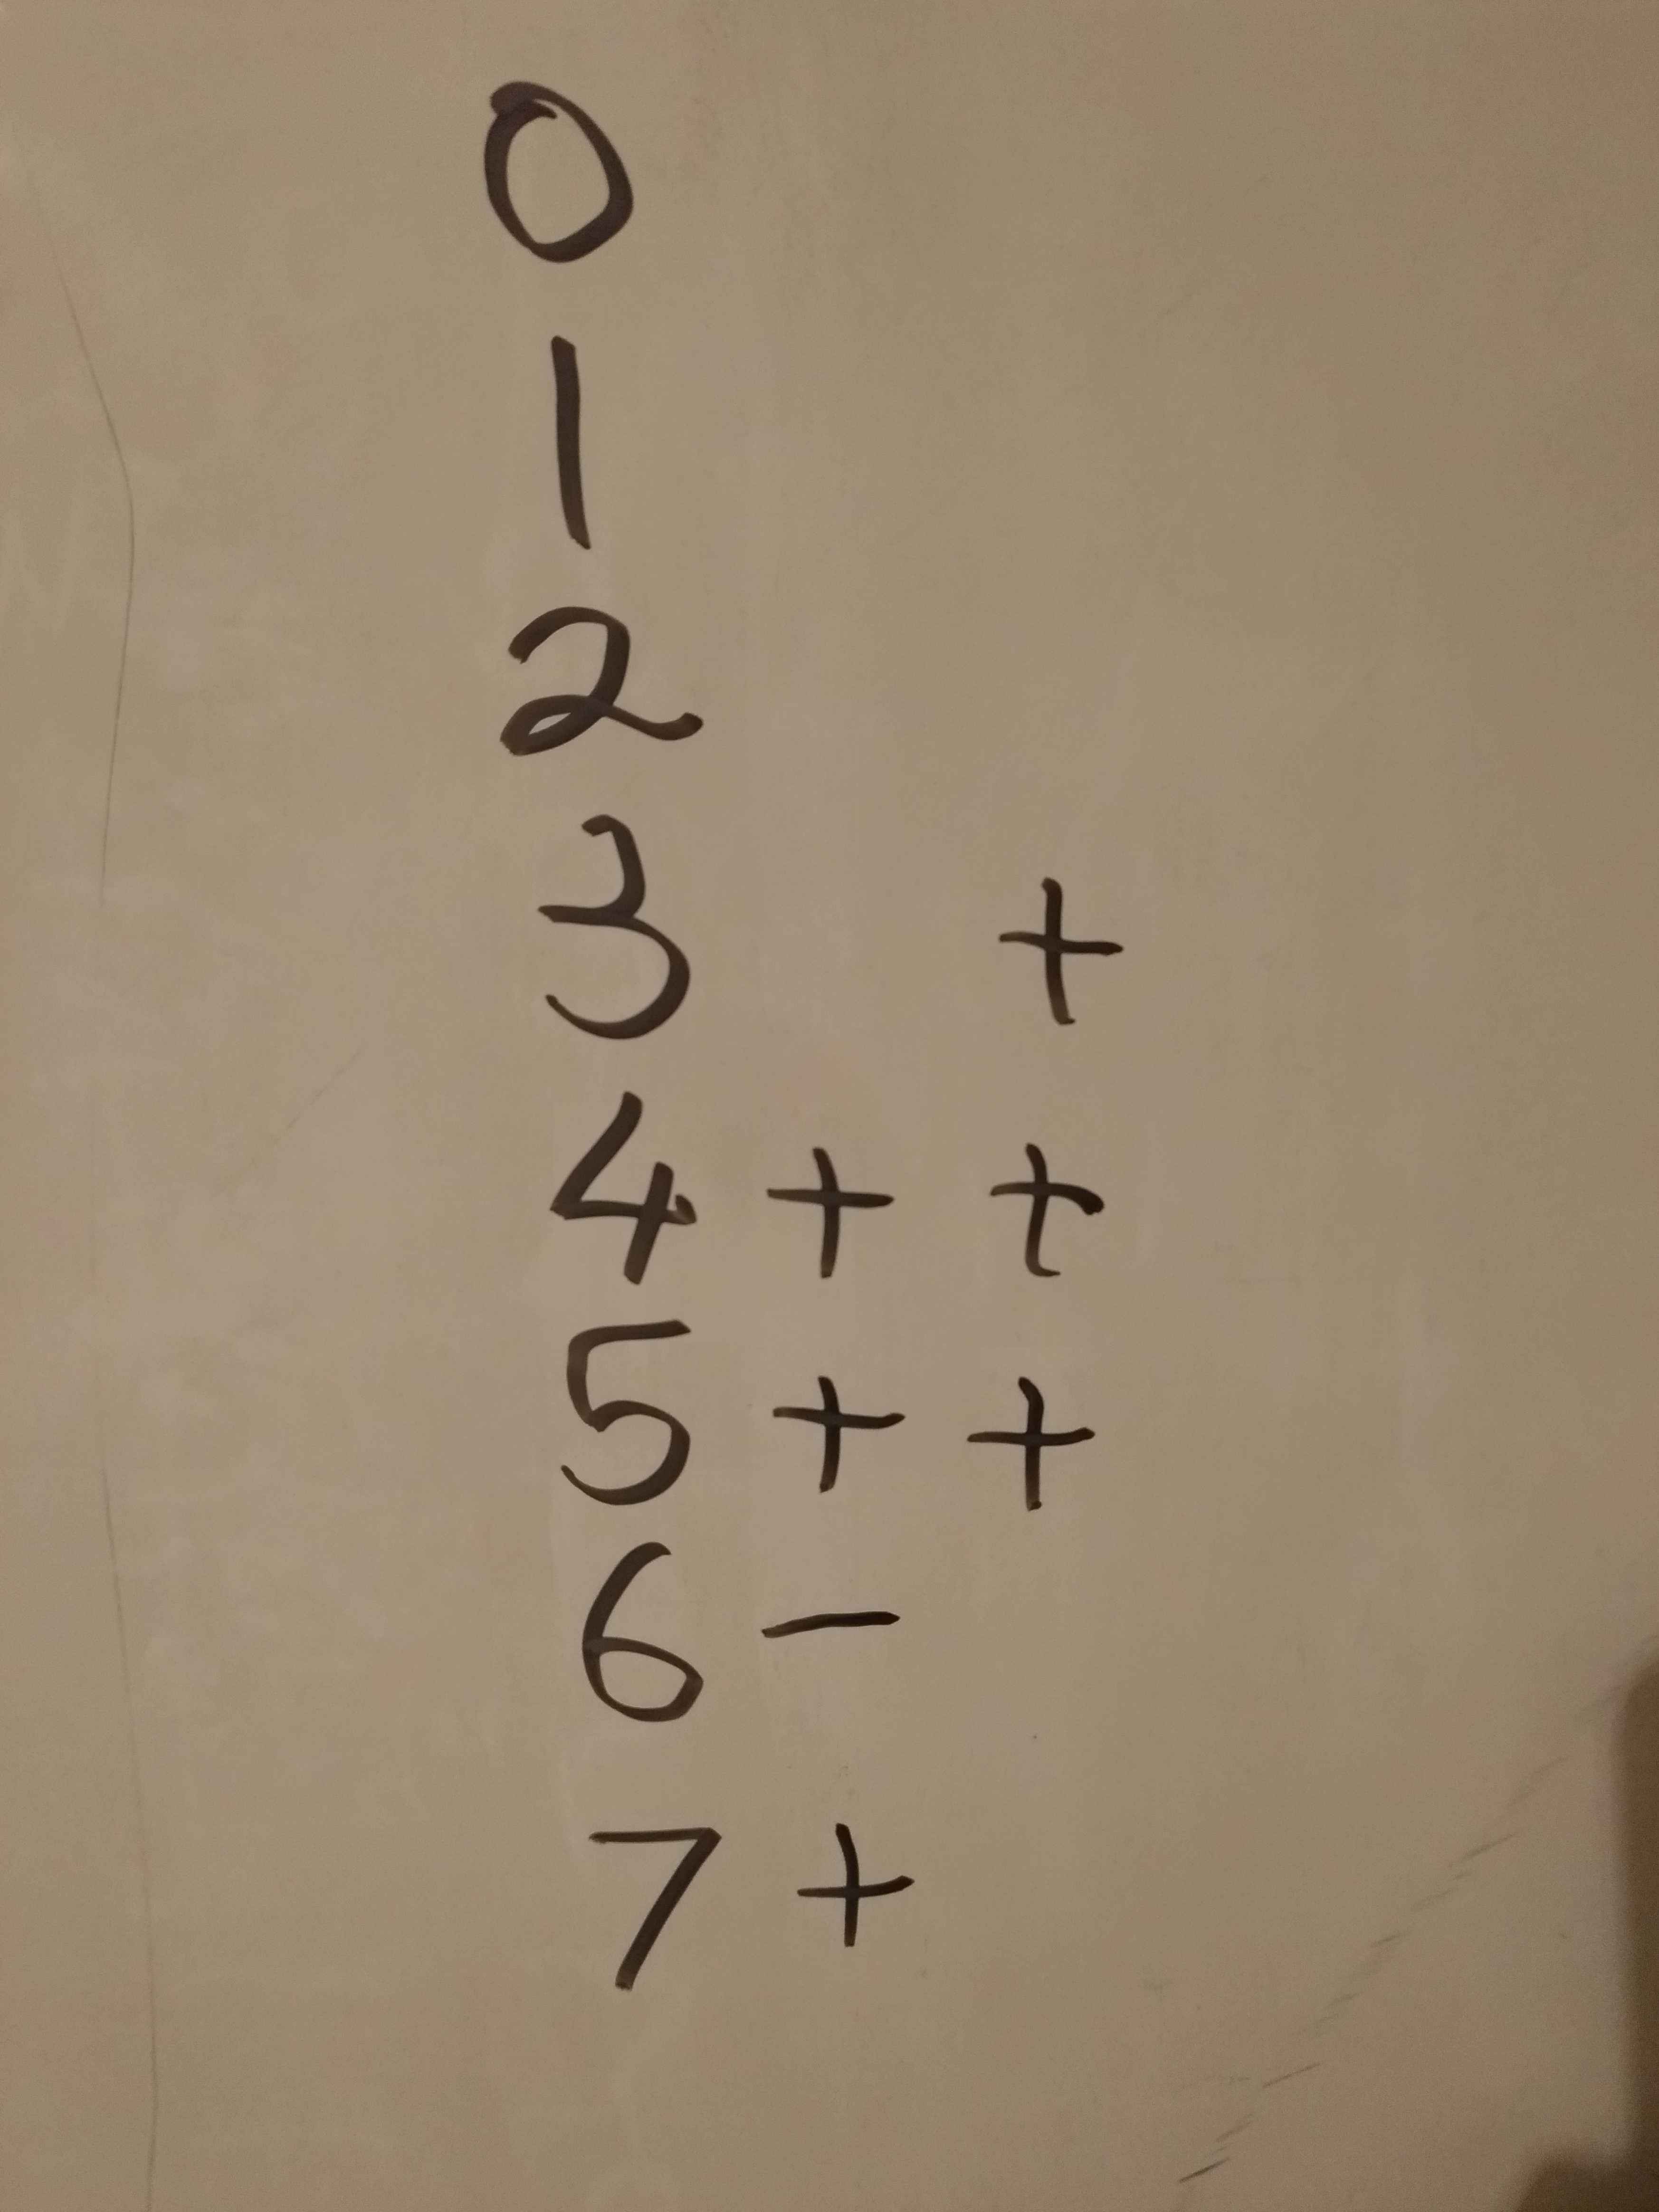 0
1
2
3 +
4 + +
5 + +
6 -
7 +